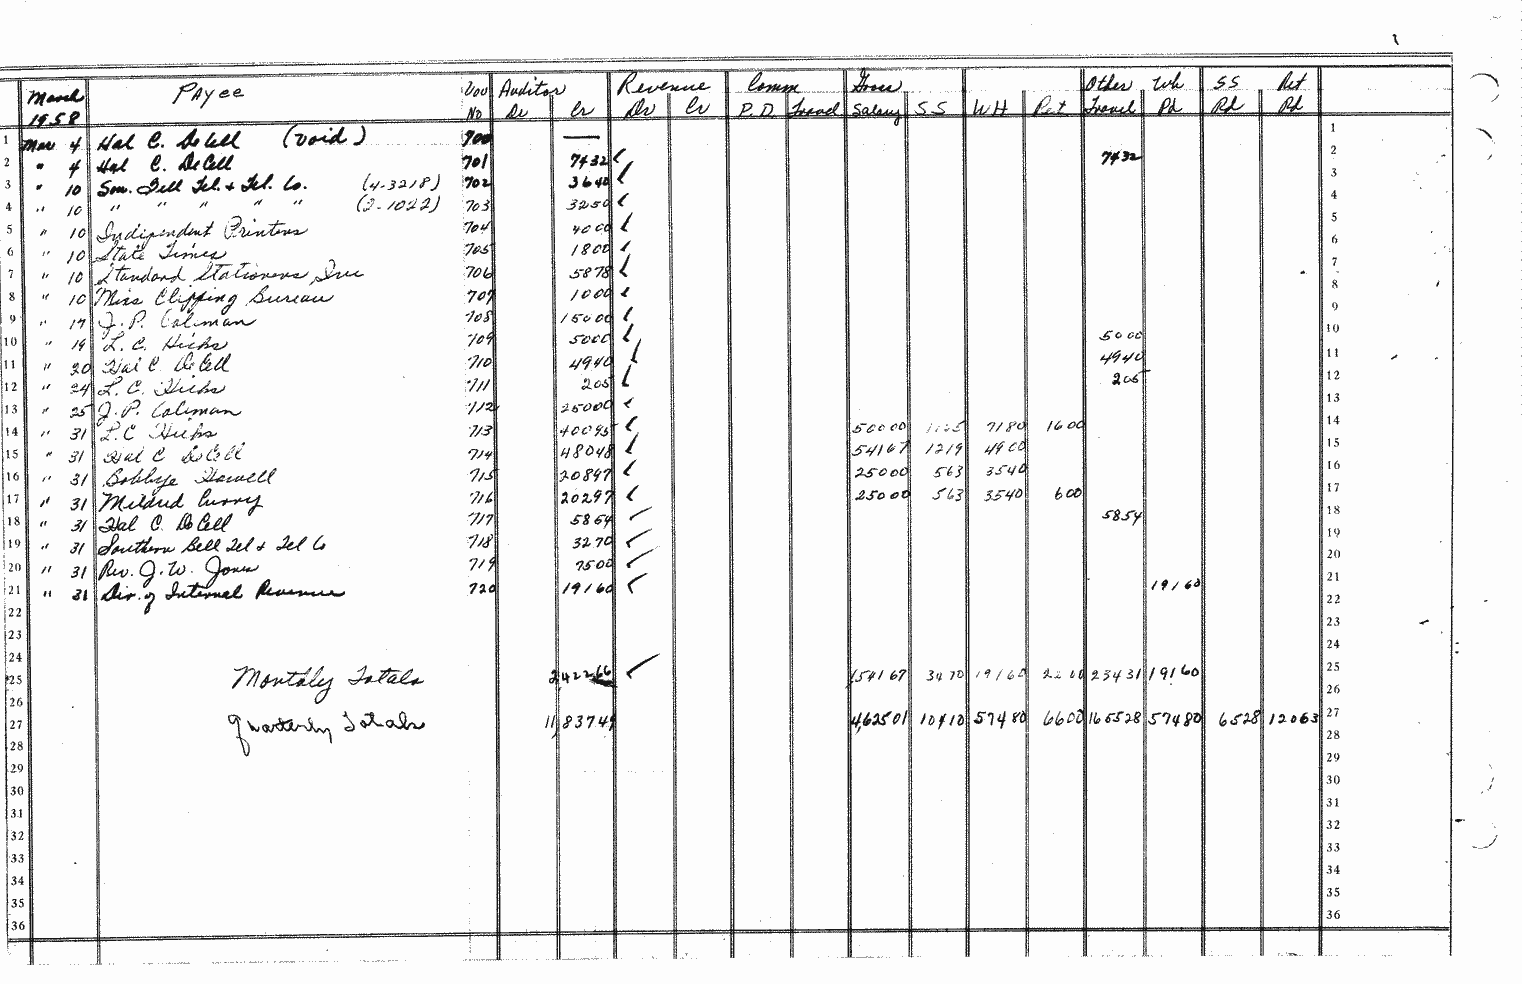 March Payee Vou Auditor Revenue Comm Gross Other Wh SS Ret
1958 No Dr Cr Dr Cr P.D. Travel Salary SS WH Ret Travel Pd Pd Pd
1 Mar 4 Hal C. DeCell (Void) 700 — 1
2 " 4 Hal C. DeCell 701 7432 ✓ 7432 2
3 " 10 Sou. Bell Tel. + Tel. Co. (4-3218) 702 3640 ✓ 3
4 " 10 " " " " " (2-1022) 703 3250 ✓ 4
5 " 10 Independent Printers 704 4000 ✓ 5
6 " 10 State Times 705 1800 ✓ 6
7 " 10 Standard Stationers, Inc 706 5878 ✓ 7
8 " 10 Miss Clipping Bureau 707 1000 ✓ 8
9 " 17 J. P. Coleman 708 15000 ✓ 9
10 " 19 L. C. Hicks 709 5000 ✓ 5000 10
11 " 20 Hal C. DeCell 710 4940 ✓ 4940 11
12 " 24 L. C. Hicks 711 205 ✓ 205 12
13 " 25 J. P. Coleman 712 25000 ✓ 13
14 " 31 L. C Hicks 713 40095 ✓ 50000 1125 7180 1600 14
15 " 31 Hal C DeCell 714 48048 ✓ 54167 1219 4900 15
16 " 31 Bobbye Howell 715 20897 ✓ 25000 563 3540 16
17 " 31 Mildred Curry 716 20297 ✓ 25000 563 3540 600 17
18 " 31 Hal C. DeCell 717 5854 ✓ 5854 18
19 " 31 Southern Bell Tel + Tel Co 718 3270 ✓ 19
20 " 31 Rev. J. W. Jones 719 7500 ✓ 20
21 " 31 Dir. of Internal Revenue 720 19160 ✓ 19160 21
22 22
23 23
24 24
25 Monthly Totals 2,42266 ✓ 154167 3470 19160 2200 23431 19160 25
26 26
27 Quarterly Totals 11,83749 4,62501 10410 57480 6600 165528 57480 6528 12063 27
28 28
29 29
30 30
31 31
32 32
33 33
34 34
35 35
36 36